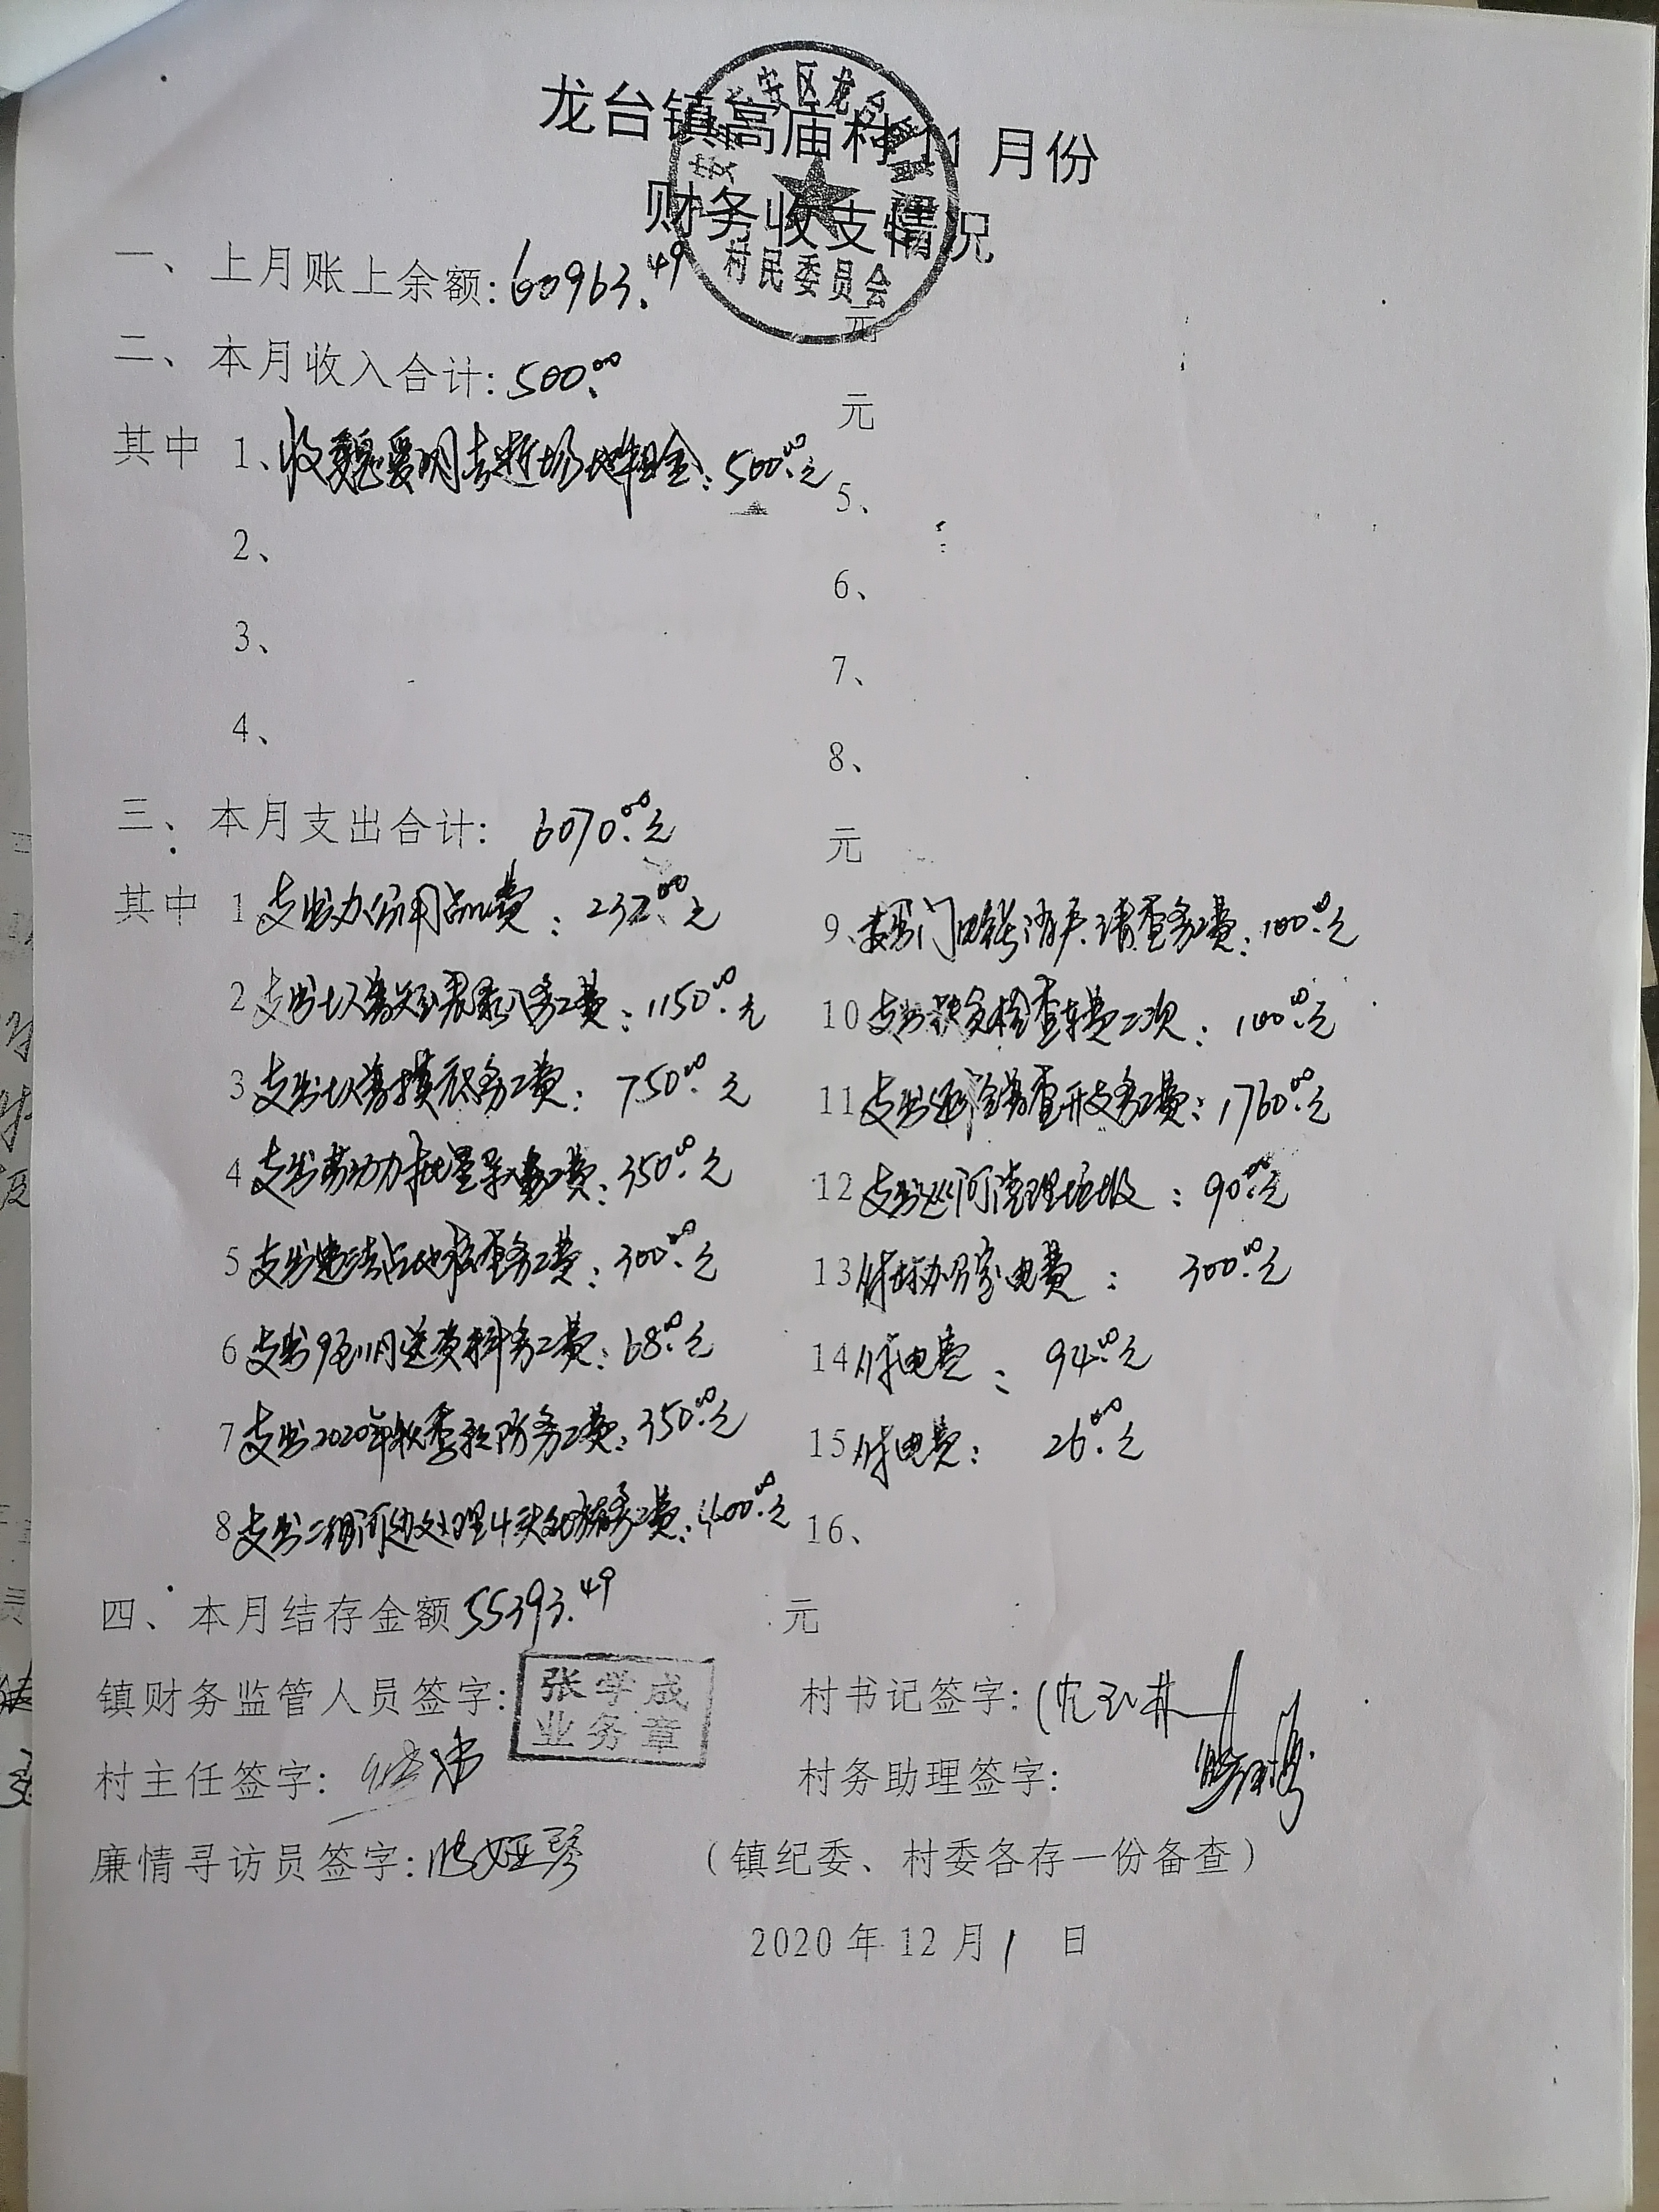 龙台镇高庙村11月份
财务收支情况
村民委员会
一、上月账上余额:60963.49元
二、本月收入合计:500.00元
其中 1、收魏爱明去逝场地租金:500.00元
5、
2、
6、
3、
7、
4、
8、
三、本月支出合计: 6070.00元 元
其中 1支出办公用品费:232.00元
9、支出门口 务工费:100.00元
2支出人普 务工费:1150.00元
10支出 检查车费二次:100.00元
3支出人普摸底务工费:750.00元
11支出 普查开支务工费:1760.00元
4支出劳动力批量导入务工费:350.00元
12支出巡河清理垃圾:90.00元
5支出违法占地 务工费:300.00元
13付村办公室电费: 300.00元
6支出9至11月送资料务工费:68.00元
14付电费: 94.00元
7支出2020年秋季 防务工费:350.00元
15付电费: 26.00元
8支出二组河边处理 务工费: 400.00元
16、
四、本月结存金额55393.49 元
镇财务监管人员签字:张学成业务章
村书记签字:
村主任签字:
村务助理签字:
廉情寻访员签字:
(镇纪委、村委各存一份备查)
2020年12月1日